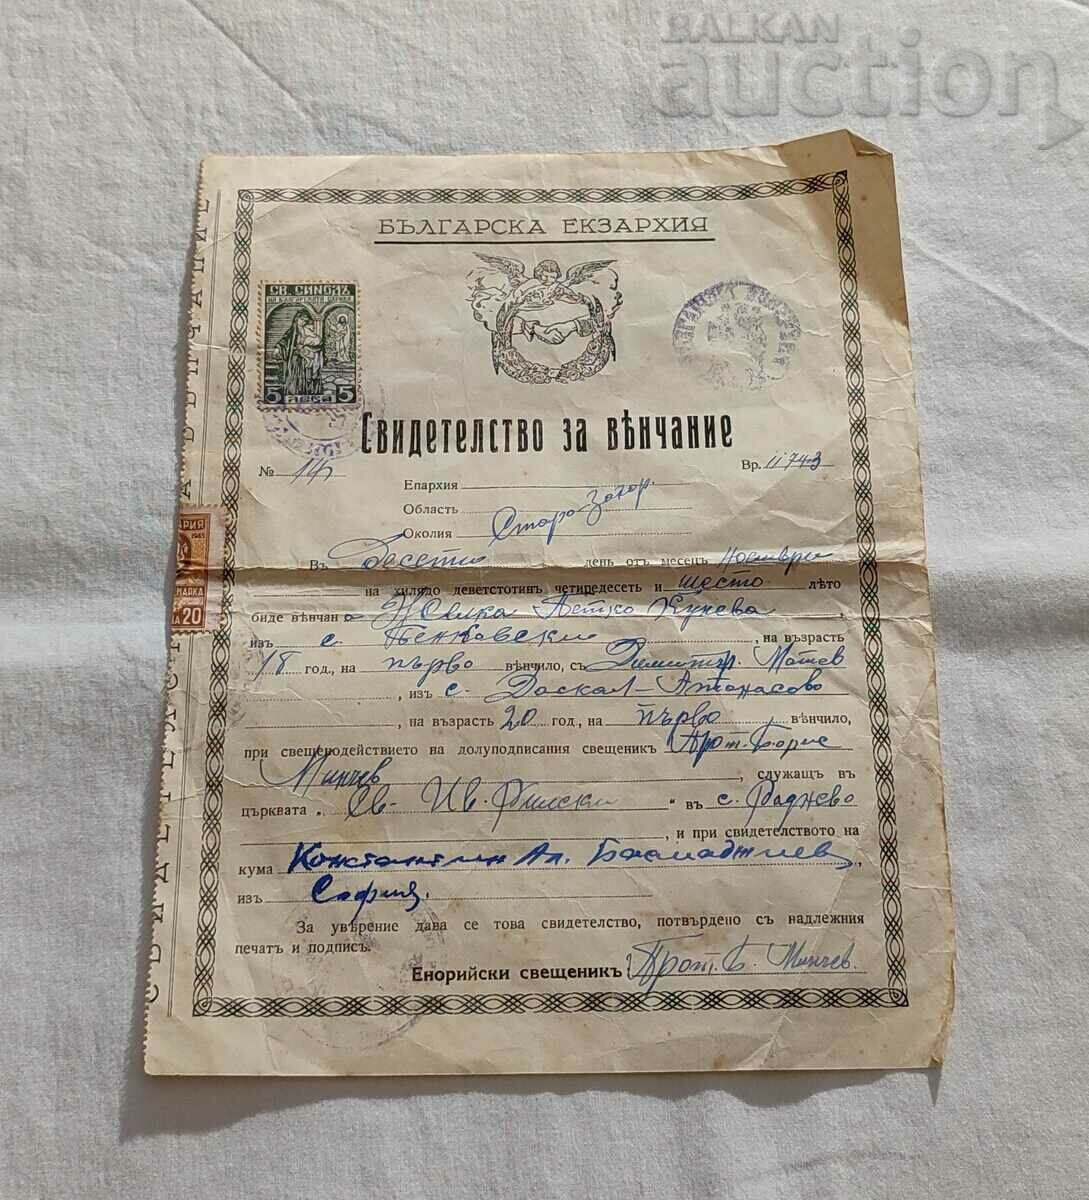 BALKAN
auction
БЪЛГАРСКА ЕКЗАРХИЯ
СВ. СИНОДЪ
5 ЛЕВА 5
Свидетелство за вѣнчание
№ 14 Вр. 11743
Епархия
Область
Околия Старо Загор.
Въ Десети день отъ месецъ Ноември
на хилядо деветстотинъ четиредесеть и шесто лѣто
биде вѣнчан а Желка Петко Кунева
изъ с. Пенковски, на възрасть
18 год., на първо вѣнчило, съ Димитър Матев
, изъ с. Даскал-Атанасово
, на възрасть 20 год., на първо вѣнчило,
при свещенодействието на долуподписания свещеникъ Прот. Борис
Минчев, служащъ въ
църквата „Св. Ив. Рилски“ въ с. Раднево
, и при свидетелството на
кума Константин Ал. Басмаджиев,
изъ София.
За увѣрение дава се това свидетелство, потвърдено съ надлежния
печатъ и подписъ.
Енорийски свещеникъ: Прот. Б. Минчев.
20